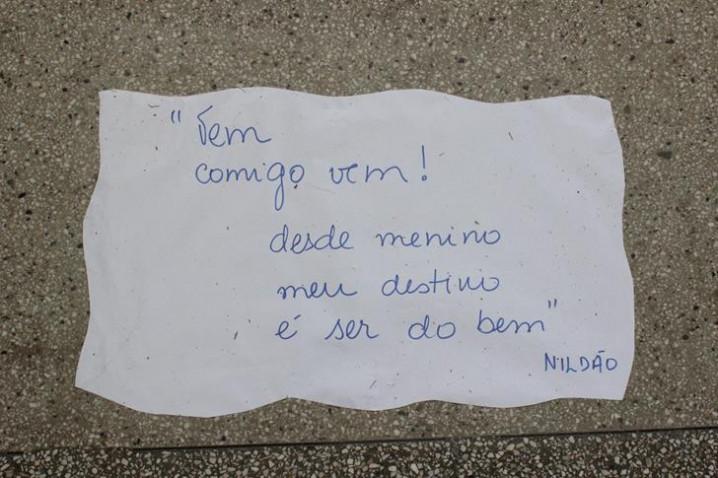 "Vem
comigo vem!
desde menino
meu destino
é ser do bem"
NILDÃO